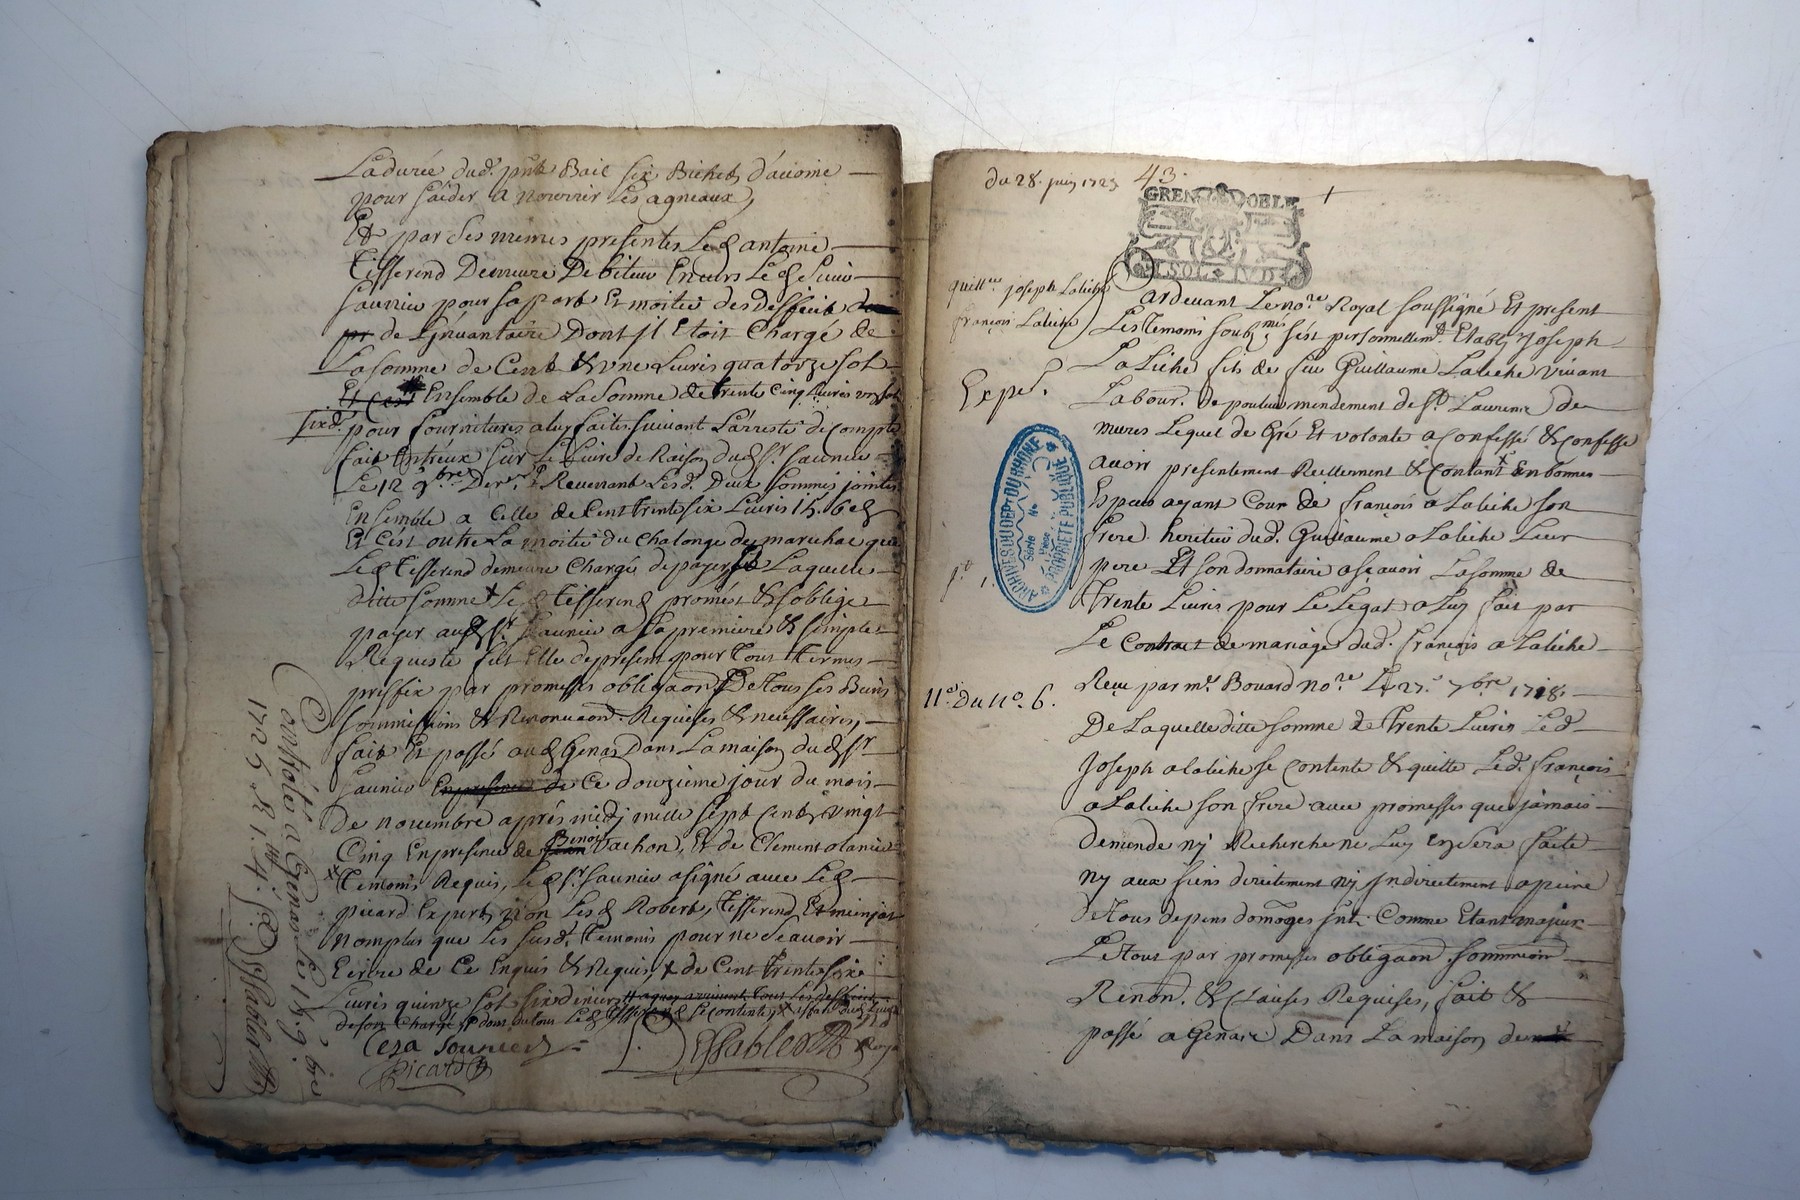 La durée dud. pnt Bail six Bichets d'avoine
pour s'aider a nourrir les agneaux
Et par ses mêmes presentes Led antoine
tisserend Demeure Debiteur Envers Led Sieur
Saunier pour sa part Et moitié des defficit
de L'invantaire Dont jl Etoit Chargé de
La somme de Cent & une Livres quatorze sol
Ensemble de La Somme de trente Cinq Livres
sixd. pour fournitures a luy faites suivant L'arresté de compte
fait Entreux sur Le Livre de Raison dud Sr. Saunier
Le 12 9bre Der. Revenant Lesd. Deux Sommes jointes
Ensemble a Celle de Cent trente six Livres 15. 6d
Et C'est outre La moitié du Chalonge du marechal que
Led tisserend demeure Chargé de payer Laquelle
ditte somme Led tisserend promest & s'oblige
payer aud Sr. Saunier a Sa premiere & simple
Requeste fut Elle de present pour tout terme
prefix par promesses obligaon De tous ses Biens
Soumissions & Renonciaon. Requises & necessaires
fait Et passé aud Genas Dans La maison dud Sr
Saunier En presence de Ce douzieme jour du mois
De novembre aprés midj mille sept Cents vingt
Cinq En presence de Benoit vachon, Et de Clement
temoins Requis, Led Sr. Saunier a signé avec Led
picard Expert, non Lesd Robert, tisserend, Et
nomplus que Les susd. temoins pour ne Scavoir
Ecrire de Ce Enquis & Requis, de Cent trente six
Livres quinze sol six deniers
Picard
Controlé a Genas Le 15. 9bre
1725
du 28. juin 1723
43.
GRENOBLE
SOL
quittce. joseph Laliche
françois Laliche
Pardevant Le nore. Royal soussigné Et present
Les temoins soubznes s'est personnellemt. Etably joseph
Laliche fils de feu Guillaume Laliche vivant
Expé.
Labour. de mendement de St. Laurent de
mures Lequel de Gré Et volonté a Confessé & Confesse
avoir presentement Reellement & Contant En bonnes
Especes ayant Cour de françois a Laliche son
frere heritier dud. Guillaume a Laliche Leur
pere Et son donnataire a sçavoir La somme de
trente Livres pour Le Legat a Luy fait par
Le Contract de mariage dud. françois a Laliche
Reçu par me. Bouard nore. Le 27e. 7bre 1718.
11e. Du no. 6.
De Laquelle ditte somme de trente Livres Led
Joseph a laliche se Contente & quitte Led. françois
a Laliche son frere avec promesses que jamais
demende ny Recherche ne Luy En Sera faite
ny aux siens directement ny jndirectement a peine
de tous depens domages jnt. Comme Etant majeur
Le tout par promesses obligaon Sommission
Renon. & Clauses Requises, fait &
passé a Genas Dans La maison de
ARCHIVES DU DEPT DU RHONE
PROPRIÉTÉ PUBLIQUE
Série
No
Pièce